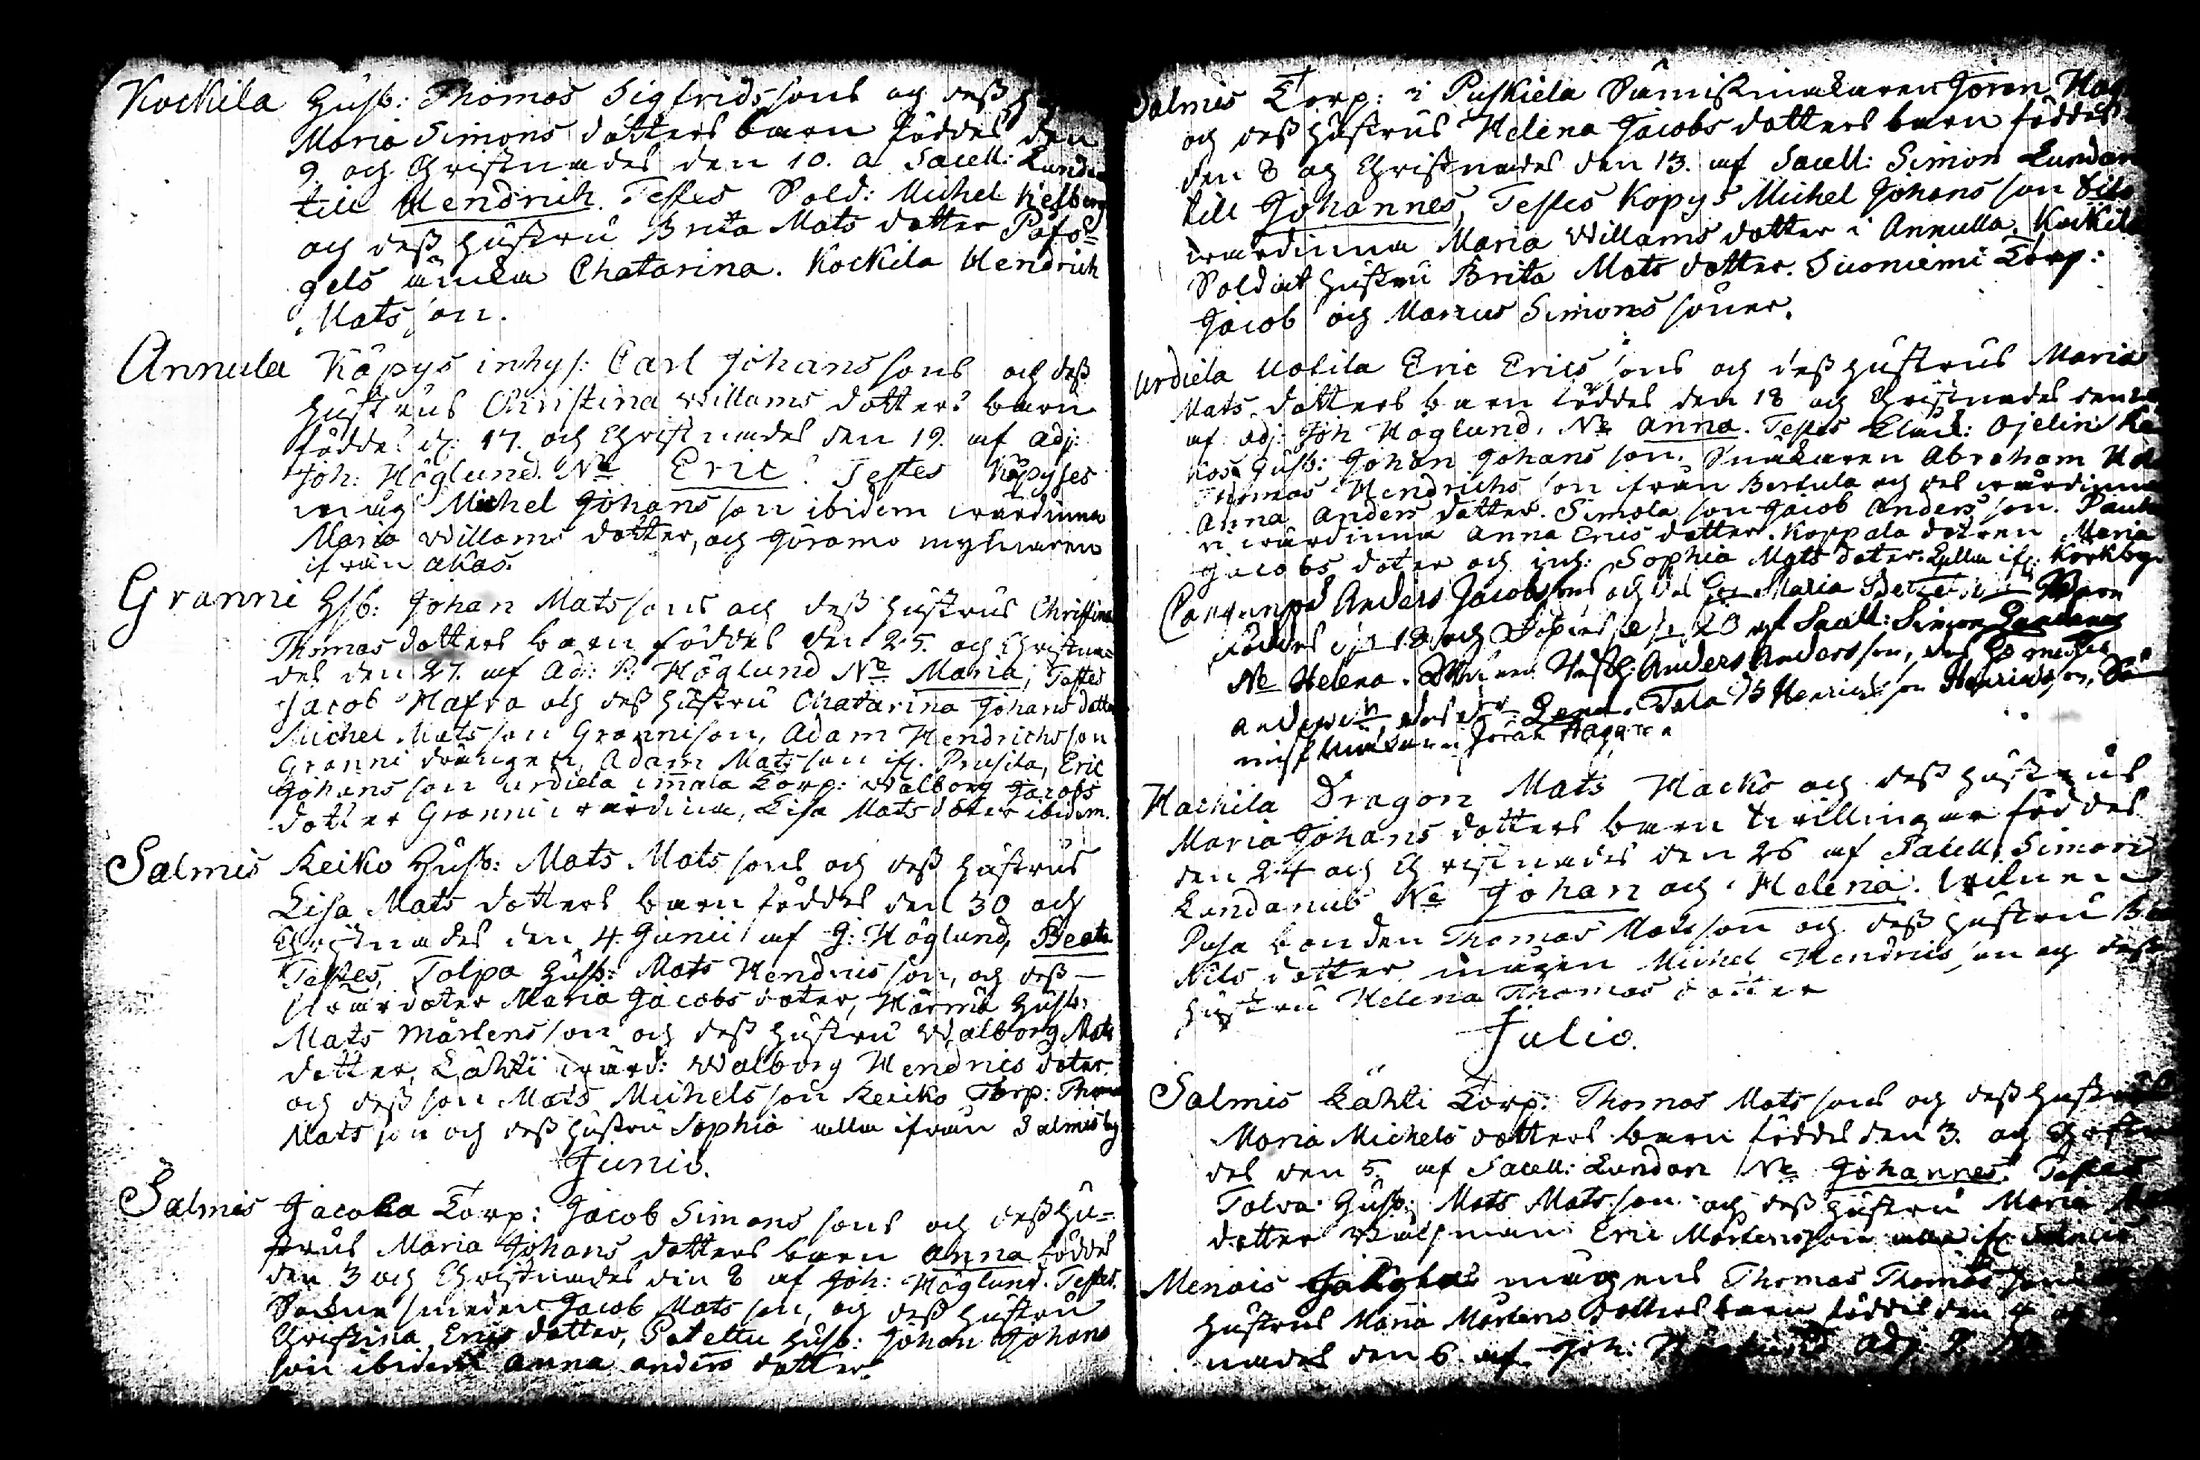 Kockila Husb: Thomas Sigfridssons och dess
Maria Simons dotters barn föddes den
9 och Christnades den 10. a Sacell: Lundan
till Hendrich. Testes Sold: Michel Kielberg
och dess hustru Brita Mats dotter Påfs=
gels änka Chatarina. Kockila Hendrich
Matsson.
Annula Kåpys inhys: Carl Johanssons och dess
hustrus Christina Willams dotters barn
föddes d: 17. och Christnades den 19. af adj:
Joh: Höglund. Ne Eric. Testes Kåpyses
måg Michel Johansson ibidem wärdinna
Maria Willams dotter, och Göramo mylnaren
ifrån akas.
Granni Hsb: Johan Matssons och dess hustrus Christina
Thomas dotters barn föddes den 25. och Christna=
des den 27. af Adj: P: Höglund Ne Maria, Testes
Jacob Hafra och dess hustru Chatarina Johans dotter
Michel Matsson Granni son, Adam Hendrichsson
Granni drängen, Adam Matsson ifr. Prusila, Eric
Johansson urdiela immala Torp: Walborg Jacobs
dotter Granni wärdinna, Lisa Mats doter ibidem.
Salmis Keiko Husb: Mats Matssons och dess hustrus
Lisa Mats dotters barn föddes den 30 och
Christnades den 4. Junii af J: Höglund, Beata
Testes, Tolpa Husb: Mats Hendricsson, och dess
swärdoter Maria Jacobs doter, Märrmä Husb:
Mats Mårtensson och dess hustru Walborg Mats
dotter, Lähti wärd: Walborg Hendrics doter.
och dess son Mats Michelsson Keiko Torp: Thomas
Matsson och dess hustru Sophia alla ifrån Salmis by
Junio.
Salmis Jacola Torp: Jacob Simons sons och dess hu=
strus Maria Johans dotters barn Anna föddes
den 3 och Christnades den 8 af Joh: Höglund. Testes.
Sockne smeden Jacob Matsson, och dess hustru
Christina Erics dotter, Peteltu Husb: Johan Johans
son ibidem anna anders dotter.
Salmis Torp: i Puskiela Sämiskmakaren Göran Hag
och dess hustrus Helena Jacobs dotters barn föddes
den 8 och Christnades den 13. af Sacell: Simon Lundan
till Johannes, Testes Kopys Michel Johansson
wärdinna Maria Willams dotter i Annulla. Kockila
Soldat hustru Brita Mats dotter. Suoniemi Torp:
Jacob och Marcus Simons söner.
Urdiela Uotila Eric Ericssons och dess hustrus Maria
Mats dotters barn föddes den 18 och Christnades den
af adj: Joh Höglund. Ne Anna. Testes Ojelin
Husb: Johan Johansson. Snikaren Abraham
Thomas Hendrichsson ifrån Bertula och des wärdinna
Anna Anders dotter. Simola son Jacob Andersson.
wärdinna Anna Erics dotter. Koppala dotren Maria
Jacobs doter och inh: Sophia Mats doter ifr: Körkby.
Anders Jacobssons och des Maria barn
föddes d: 18 och Döptes d: 23 af Sacell: Simon Lundanus
Ne Helena. Anders Andersson,
Lena. Tala Henricsson
Göran Haga
Hachila Dragon Mats Hacks och dess hustrus
Maria Johans dotters barn twillingar föddes
den 24 och Christnades den 26 af Sacell: Simon
Lundanus Ne Johan och Helena.
Pusa bonden Thomas Matsson och dess hustru
Nils dotter mågen Michel Hendricsson och dess
hustru Helena Thomas dotter
Julio.
Salmis Lähti Torp: Thomas Matssons och dess hustrus
Maria Michels dotters barn föddes den 3. och Christna
des den 5. af Sacell: Lundan Ne Johannes. Testes
Tolva Husb: Mats Matsson och dess hustru Maria
dotter Eric Mårtensson
Menois mågens Thomas Thomas
hustrus Maria Mårtens dotters barn föddes den
nades den 6 af Joh: Höglund Adj.